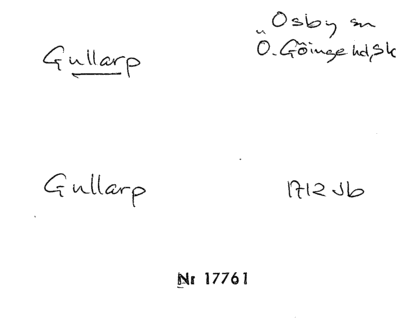 Gullarp
Osby sn
Ö. Göinge hd, Sk
Gullarp
1712 Jb
Nr 17761